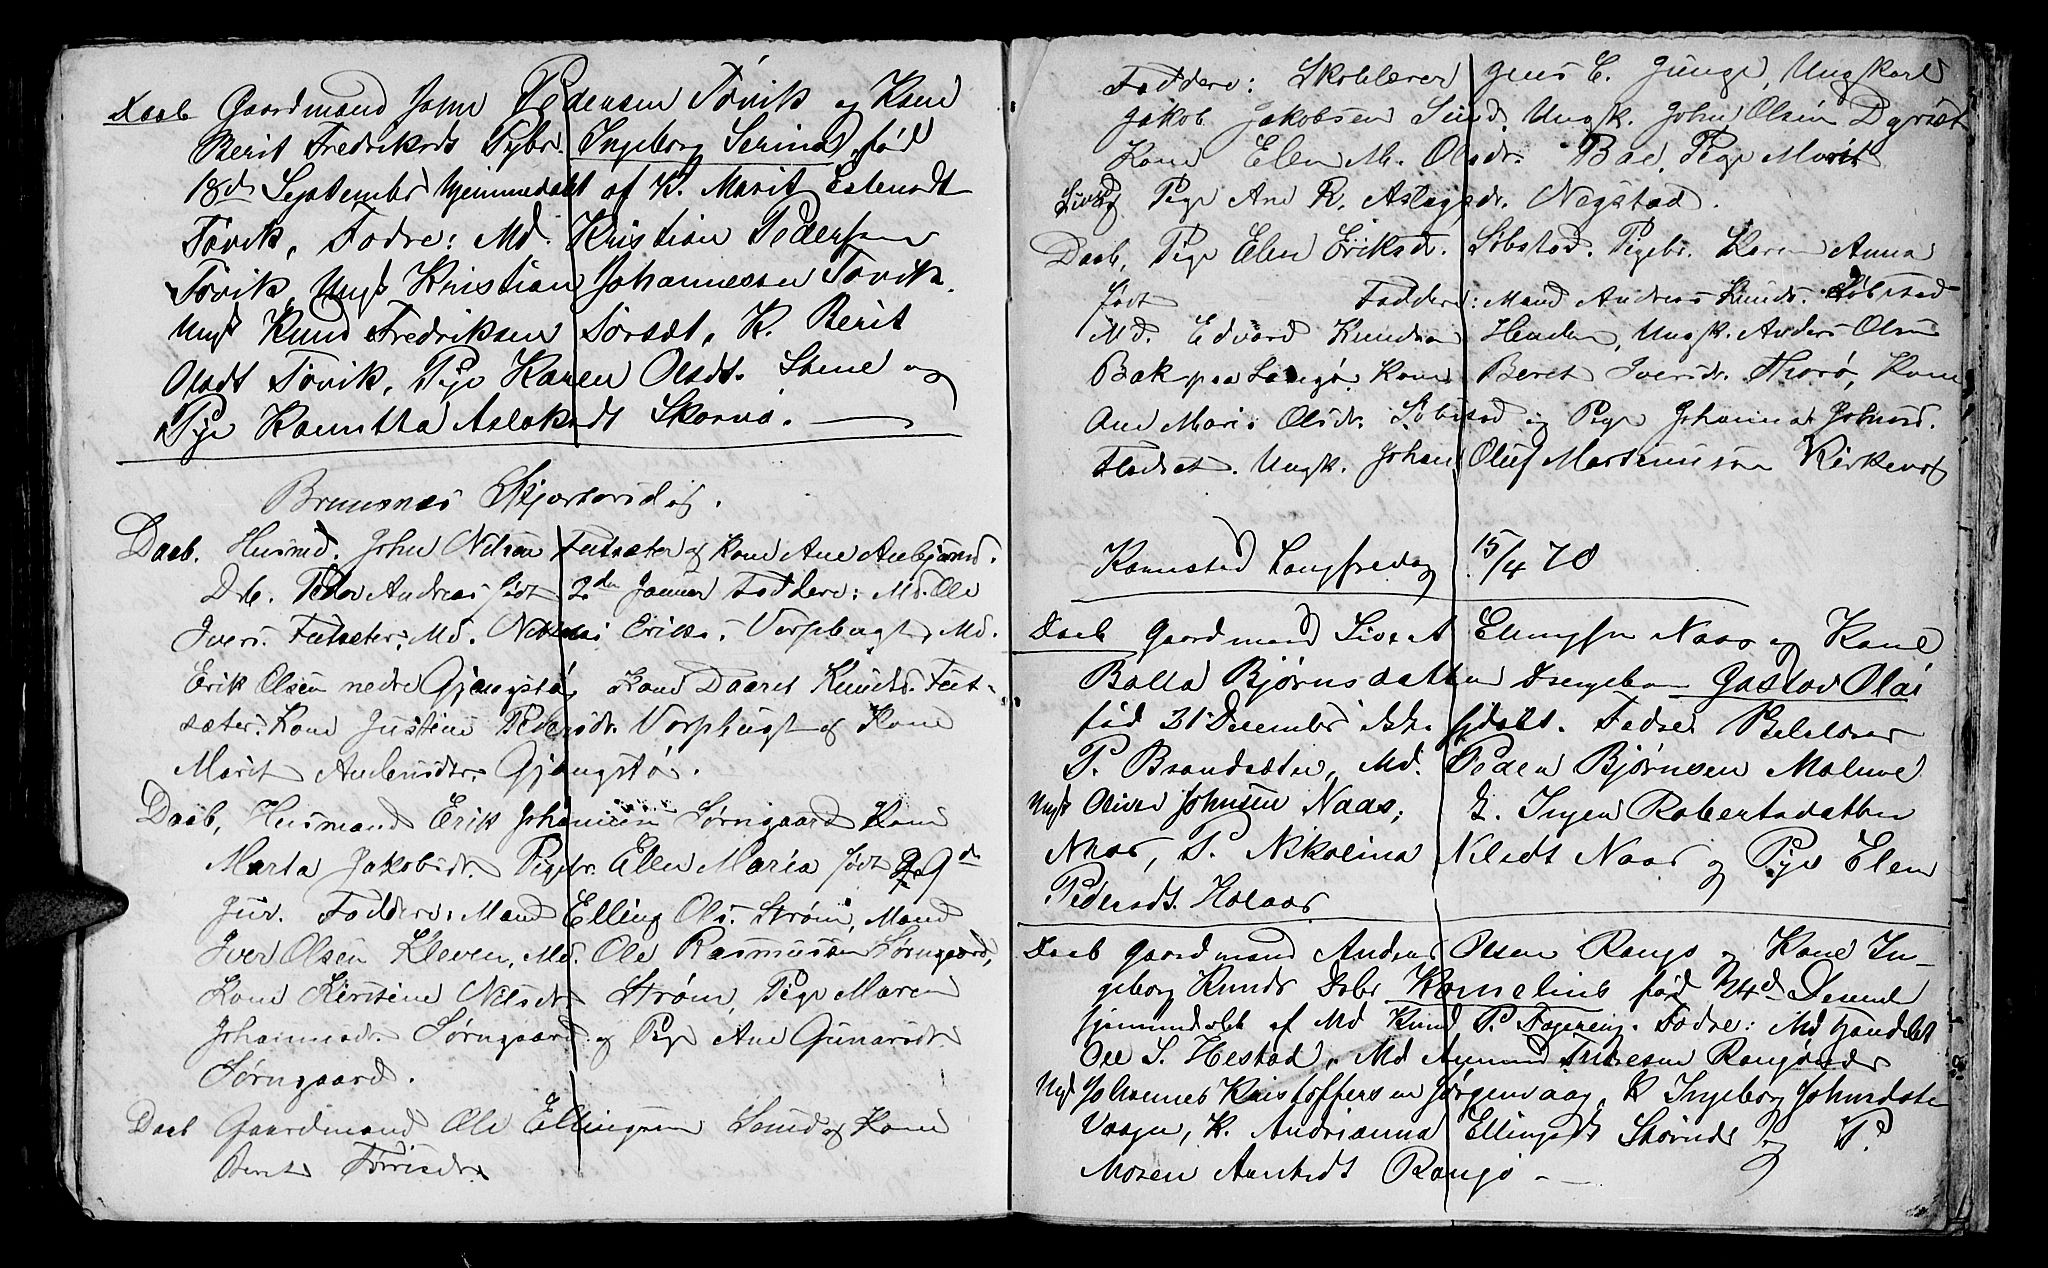 Daab Gaardmand John Pedersen Tövik og Kone
Berit Fredriksdt Pgbr. Ingeborg Serina, fød
18de September hjemmedøbt af K. Marit Estensdt
Tövik, Fadre: Md. Kristian Pedersen
Tövik, Ungk Kristian Johannesen Tövik.
Ungk Knud Fredriksen Sorsæt, K. Berit
Olsdt Tövik, Pige Karen Olsdt. Stene og
Pige Aslaksdt
Bremsnes Skjærtorsdag.
Daab. Husmd. John Nilsen og Kone Ane
Drb. Peder Andreas født 2den Januar Faddere: Md. Ole
Ivers. Md. Eriks. Vorphugt, Md.
Erik Olsen nedre Gjengstø, Kone Daaret Knuds.
sæter. Kone Justine Pedersdr. Vorphugt og Kone
Marit Gjengstø.
Daab, Husmand Erik Johannesen Sørngaard Kone
Marta Jakobsdr. Pigebr. Ellen Maria født 9de
Faddere: Mand Elling Ols. Strøm, Mand
Iver Olsen Kleven, Md. Ole Rasmussen Sørngaard,
Kone Kirstine Nilsdr Strøm, Pige Maren
Johannesdr. Sørngaard og Pige Ane Gunarsdr
Sørngaard.
Daab Gaardmand Ole Ellingsen Sund og Kone
Beret
Faddere: Skolelærer Jens C. Junge, Ungkarl
Jakob Jakobsen Sund, Ungk. John Olsen Dyrset
Kone Elen M. Olsdr. Bae, Pige Marit
Pige Ane R. Aslagsdr. Negstad.
Daab, Pige Elen Eriksd. Sobstad. Pigebr. Karen Anna
født Faddere: Mand Andreas Knuds. Sobstad
Md. Edvard Knudsen Henden, Ungk. Anders Olsen
Bak paa Langø, Kone Beret Iversdr. Thorø, Kone
Ane Maria Olsdr. Sobstad og Pige Johanna Johnsd.
Fladset. Ungk. Johan Oluf Martinussen Kirkevog
Kornstad Langfredag 15/4 70
Daab Gaardmand Sivert Ellingsen Naas og Kone
Bolla Bjørnsdatter Drengebarn Gustav Olai
fød 31 December ikke hjdøbt. Fadre
P. Brandsæter, Md. Peder Bjørnsen Malme
Ungk Oliver Johnsen Naas, K. Inger Robertsdatter
Naas, P. Nikolina Nilsdt Naas og Pige Elen
Pedersdt. Holaas
Daab Gaardmand Anders Olsen Rangø og Kone In-
geborg Knudsdt Drbr Kornelius fød 24de Decemb
hjemmedøbt af Md Knud P. Fagereng. Fadre: Md
Ole S. Hestad, Md
Ungk Johannes Kristoffersen Jørgenvaag, K Ingeborg Johnsdatter
Vaagen, K. Andrianna Ellingsdt og P.
Rangø